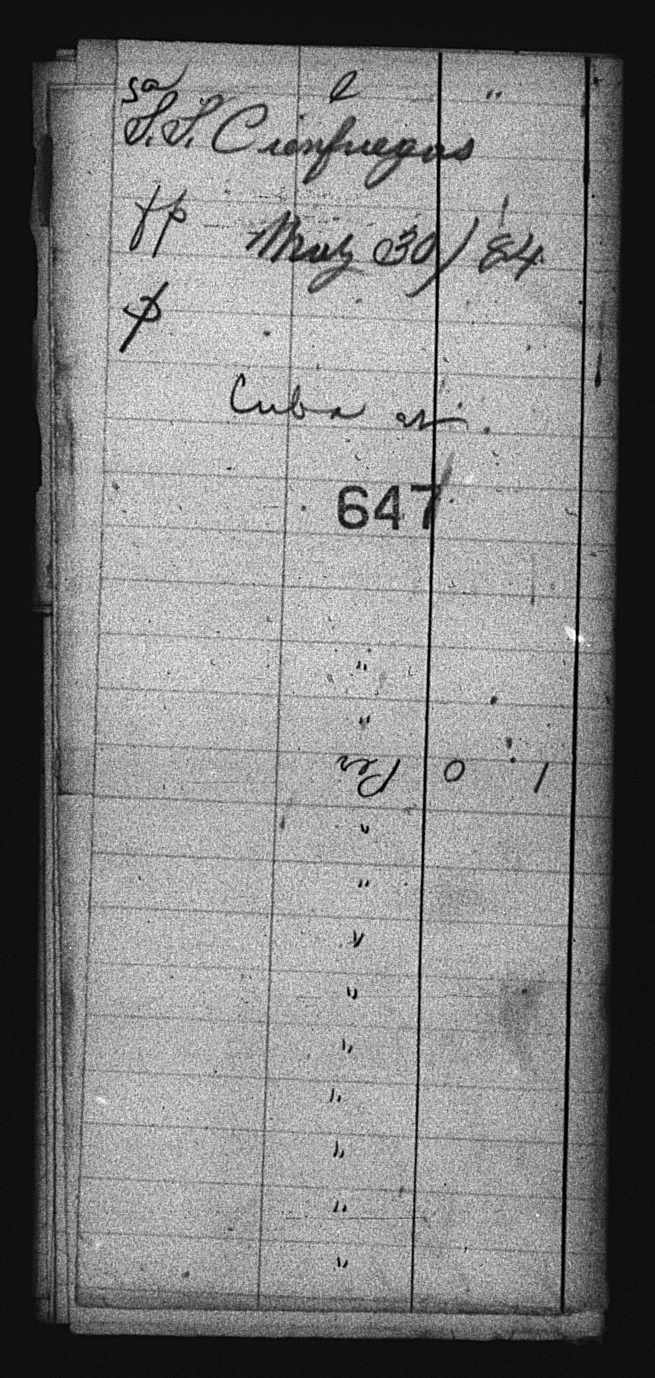 S.S. Cienfuegos
May 30/84
Cuba
647
"
"
Per 0 1
"
"
"
"
"
"
"
"
"